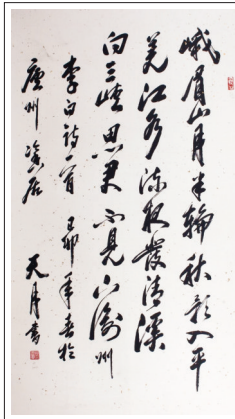 峨眉山月半輪秋影入平
羌江水流夜發清溪
向三峽思君不見下渝州
李白詩一首 己卯年春於
廬州 居 天月書